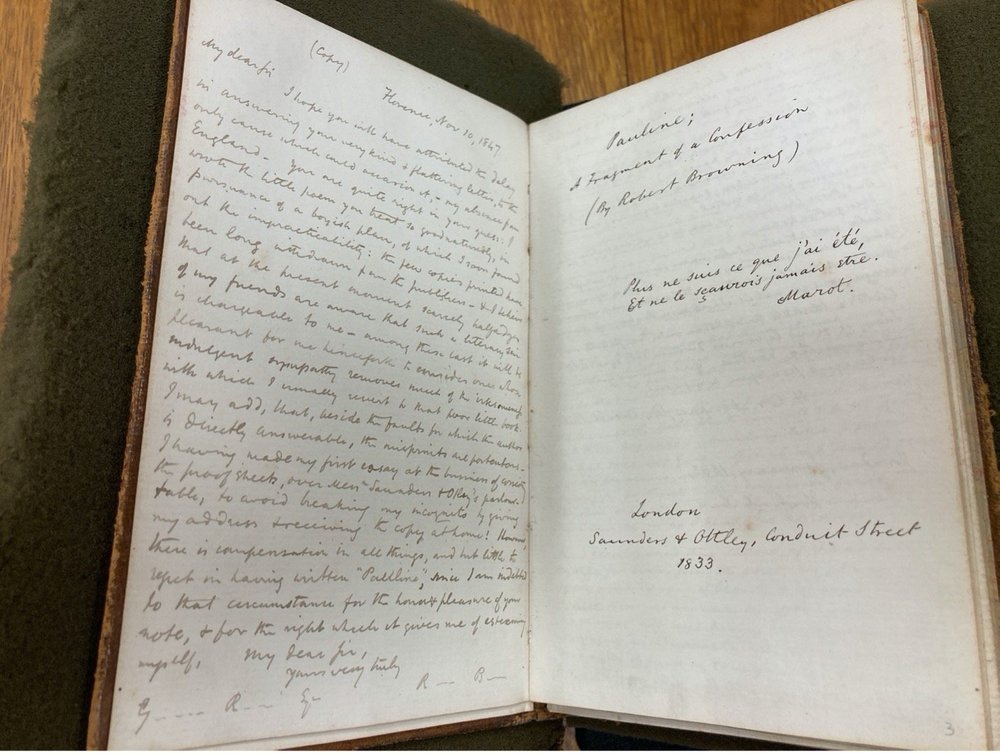 (Copy)
My dear Sir
Florence, Nov 10, 1847
I hope you will have attributed the delay
in answering your very kind & flattering letter, to the
only cause which could occasion it, - my absence from
England - You are quite right in your guess: I
wrote the little poem you treat so goodnaturedly, in
pursuance of a boyish plan, of which I soon found
out the impracticability: the few copies printed have
been long withdrawn from the publishers - & I believe
that at the present moment scarcely half a dozen
of my friends are aware that such a literary sin
is chargeable to me - among these last it will be
pleasant for me henceforth to consider one whose
indulgent sympathy removes much of the irksomeness
with which I usually revert to that poor little book.
I may add, that, beside the faults for which the author
is directly answerable, the misprints are portentous -
I having made my first essay at the business of correcting
the proof sheets, over Mess Saunders & Otley's parlour-
table, to avoid breaking my incognito by giving
my address & receiving the copy at home! However,
there is compensation in all things, and but little to
regret in having written "Pauline", since I am indebted
to that circumstance for the honor & pleasure of your
note, & for the right which it gives me of
myself,
My dear Sir,
yours very truly
R — B —
R — Eqr
Pauline;
A Fragment of a Confession
(By Robert Browning)
Plus ne suis ce que j'ai été,
Et ne le sçaurois jamais etre.
Marot.
London
Saunders & Ottley, Conduit Street
1833.
3